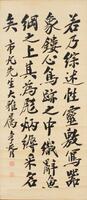 若乃綜述性靈敷寫器
象鏤心鳥跡之中織辭魚
網之上其為彪炳縟采名
矣 先生大雅屬